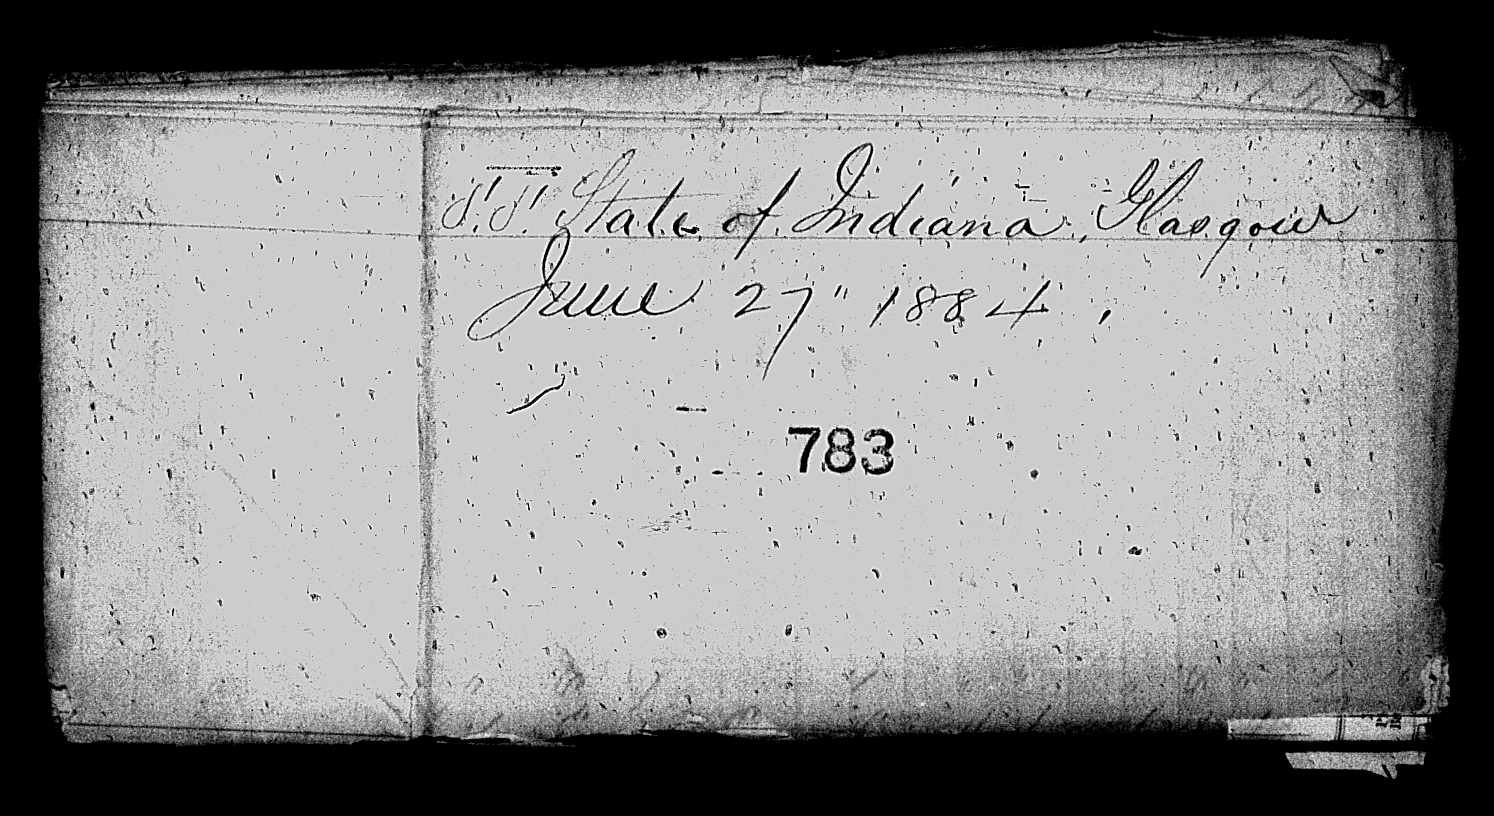 S.S. State of Indiana, Glasgow
June 27" 1884,
783